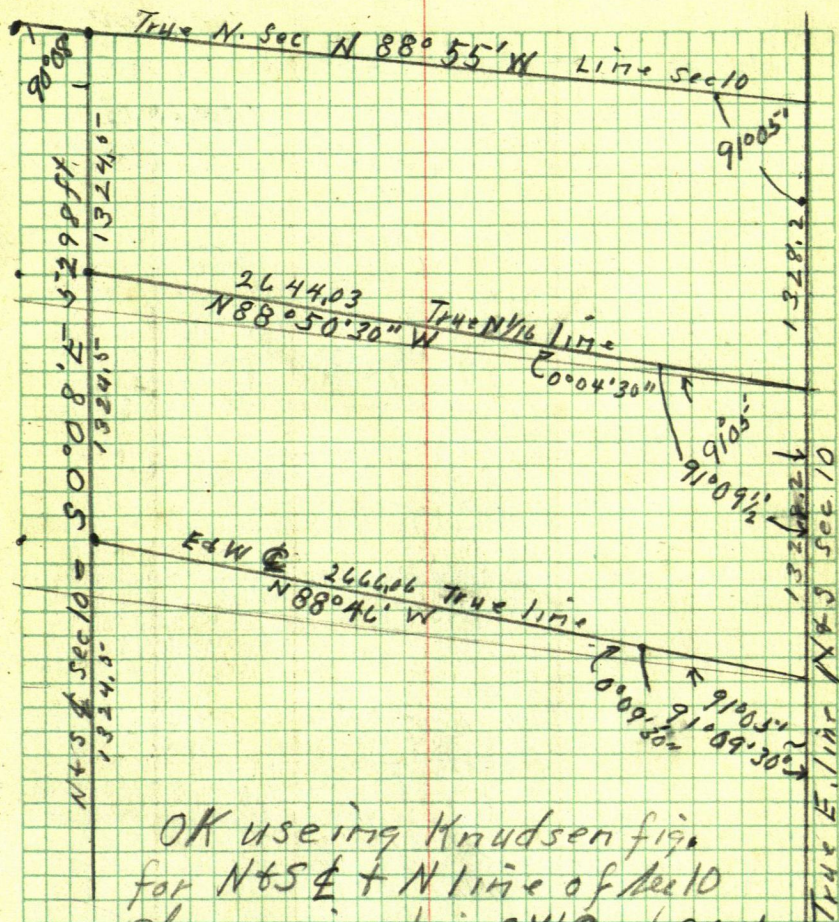 True N. Sec N 88° 55' W Line Sec 10
90°08'
91°05'
1324.5
1328.2
N & S ℄ Sec 10 = S 0° 08' E 5298 ft.
2644.03
N 88° 50' 30" W
True N 1/16 line
0° 04' 30"
91°05'
91°09½'
1324.5
1328.2
E & W ℄
2666.06 True line
N 88° 46' W
0°09'30"
91°05'
91°09'30"
1324.5
True E. line N & S Sec. 10
OK useing Knudsen fig.
for N & S ℄ + N line of Sec 10